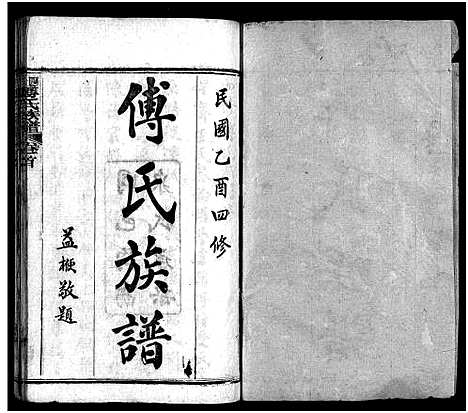 民國乙酉四修
傅氏族譜
益梗敬題
傅氏族譜 卷首